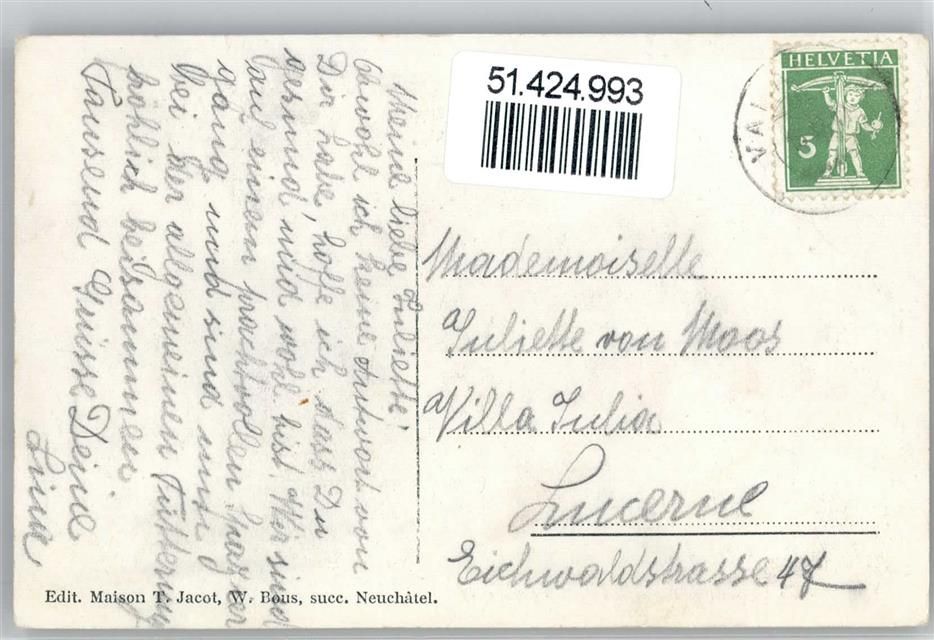 51.424.993
HELVETIA
5
VAL
Meine liebe Juliette!
Obwohl ich keine Antwort von
Dir habe, hoffe ich dass Du
gesund und wohl bist. Wir sind
auf einem prachtvollen
gang und sind
bei der allgemeinen Fütterung
höhlich beisammen
Tausend Grüsse Deine
Lina
Mademoiselle
Juliette von Moos
Villa Julia
Lucerne
Eichwaldstrasse 47
Edit. Maison T. Jacot, W. Bous, succ. Neuchâtel.